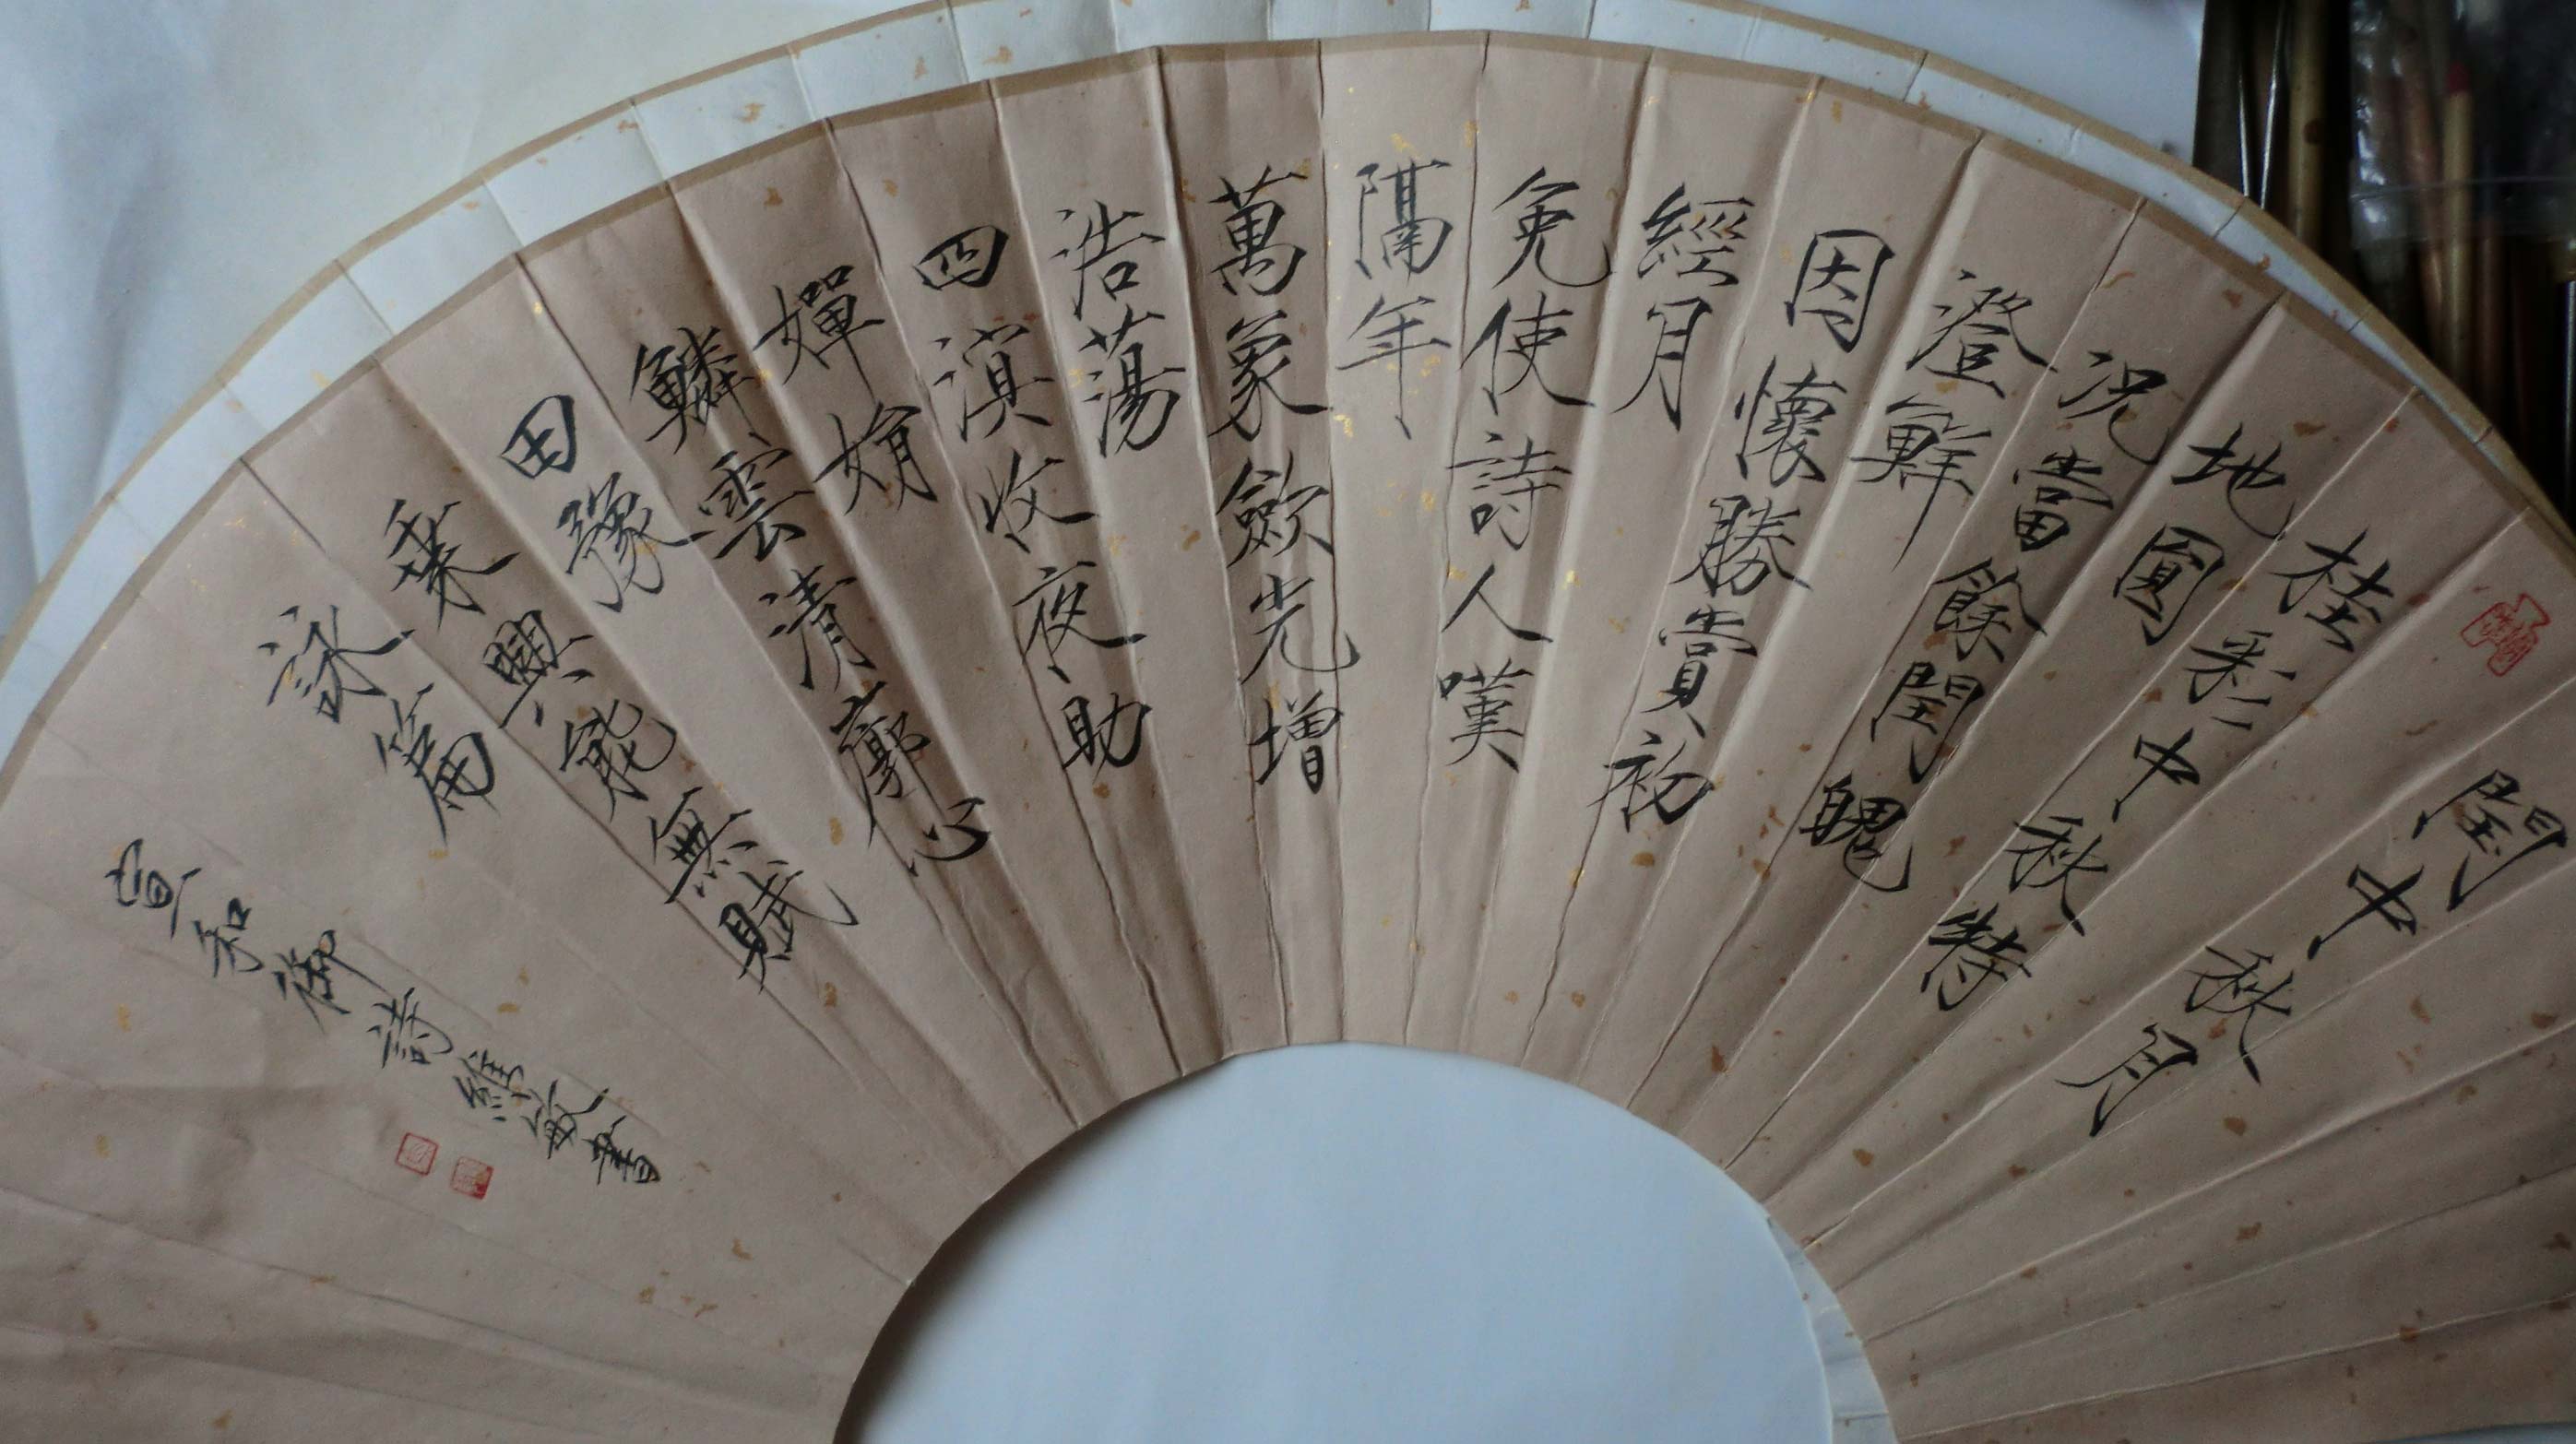 閏中秋月
桂彩中秋特
地圓
況當餘閏魄
澄鮮
因懷勝賞初
經月
免使詩人嘆
隔年
萬象歛光增
浩蕩
四溟收夜助
嬋娟
鱗雲清廓心
田豫
乘興能無賦
詠篇
宣和御詩維敏書